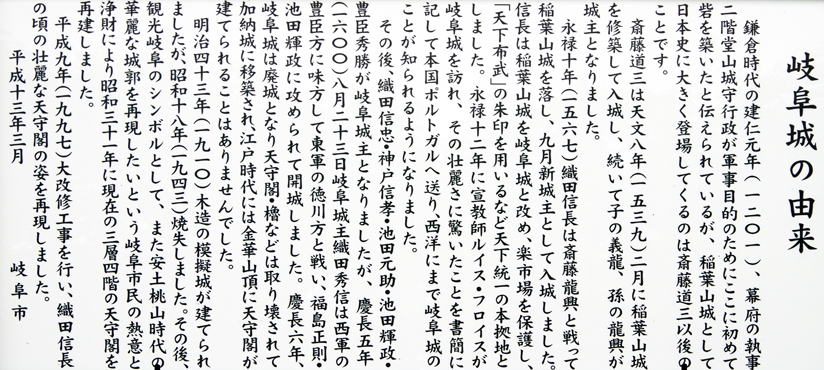 岐阜城の由来
鎌倉時代の建仁元年(一二〇一)、幕府の執事
二階堂山城守行政が軍事目的のためにここに初めて
砦を築いたと伝えられているが、稲葉山城として
日本史に大きく登場してくるのは斎藤道三以後の
ことです。
斎藤道三は天文八年(一五三九)二月に稲葉山城
を修築して入城し、続いて子の義龍、孫の龍興が
城主となりました。
永禄十年(一五六七)織田信長は斎藤龍興と戦って
稲葉山城を落し、九月新城主として入城しました。
信長は稲葉山城を岐阜城と改め、楽市場を保護し、
「天下布武」の朱印を用いるなど天下統一の本拠地と
しました。永禄十二年に宣教師ルイス・フロイスが
岐阜城を訪れ、その壮麗さに驚いたことを書簡に
記して本国ポルトガルへ送り、西洋にまで岐阜城の
ことが知られるようになりました。
その後、織田信忠・神戸信孝・池田元助・池田輝政・
豊臣秀勝が岐阜城主となりましたが、慶長五年
(一六〇〇)八月二十三日岐阜城主織田秀信は西軍の
豊臣方に味方して東軍の徳川方と戦い、福島正則・
池田輝政に攻められて開城しました。慶長六年、
岐阜城は廃城となり天守閣・櫓などは取り壊されて
加納城に移築され、江戸時代には金華山頂に天守閣が
建てられることはありませんでした。
明治四十三年(一九一〇)木造の模擬城が建てられ
ましたが、昭和十八年(一九四三)焼失しました。その後、
観光岐阜のシンボルとして、また安土桃山時代の
華麗な城郭を再現したいという岐阜市民の熱意と
浄財により昭和三十一年に現在の三層四階の天守閣を
再建しました。
平成九年(一九九七)大改修工事を行い、織田信長
の頃の壮麗な天守閣の姿を再現しました。
平成十三年三月 岐阜市